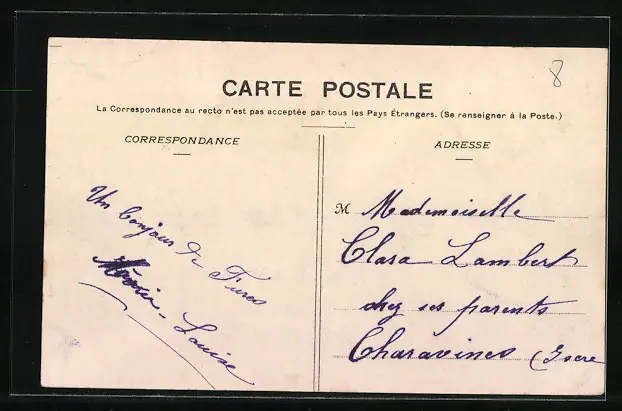 8
CARTE POSTALE
La Correspondance au recto n'est pas acceptée par tous les Pays Étrangers. (Se renseigner à la Poste.)
CORRESPONDANCE
Un bonjour de Tures
Louise
ADRESSE
M Mademoiselle
Clara Lambert
chez ses parents
Charavines (Isere